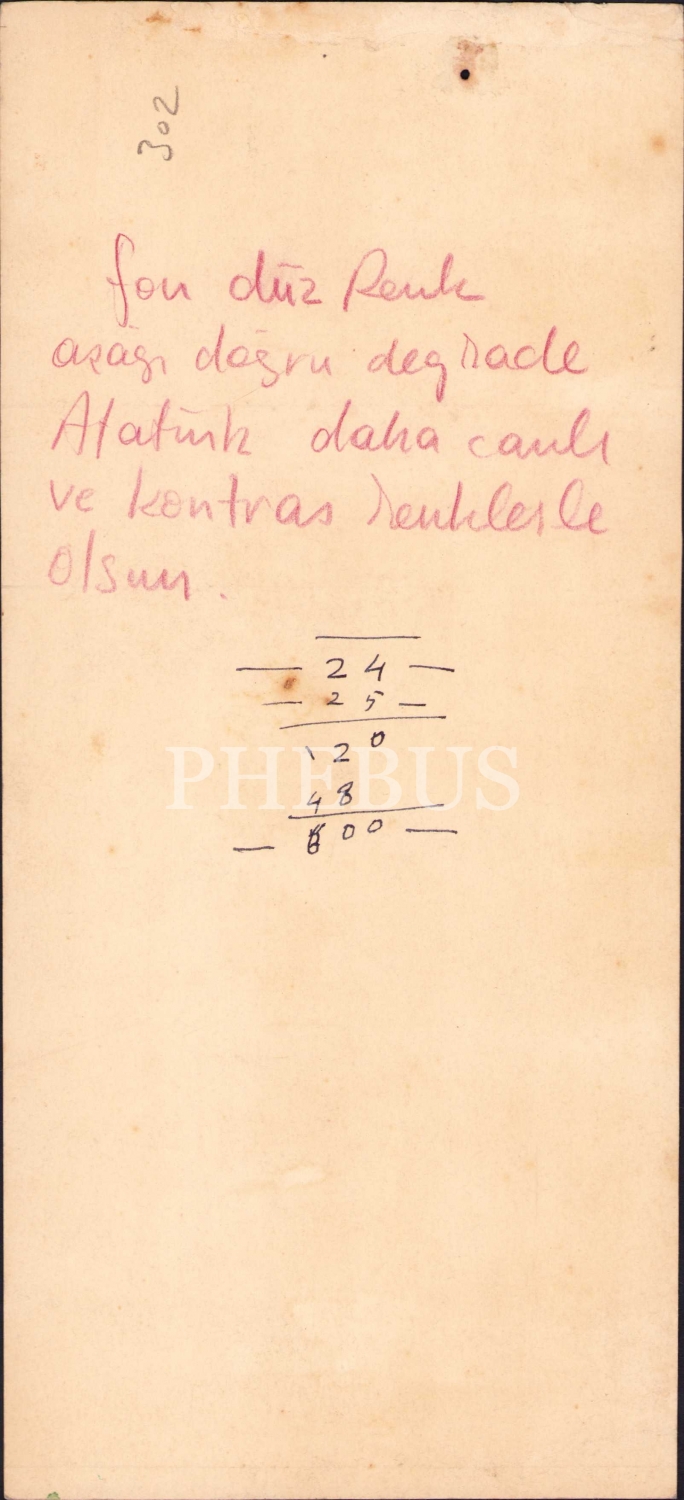 302
fon düz Renk
aşağı doğru degrade
Atatürk daha canlı
ve kontras renklerle
olsun.
— 24 —
— 25 —
120
48
— 600 —
PHEBUS